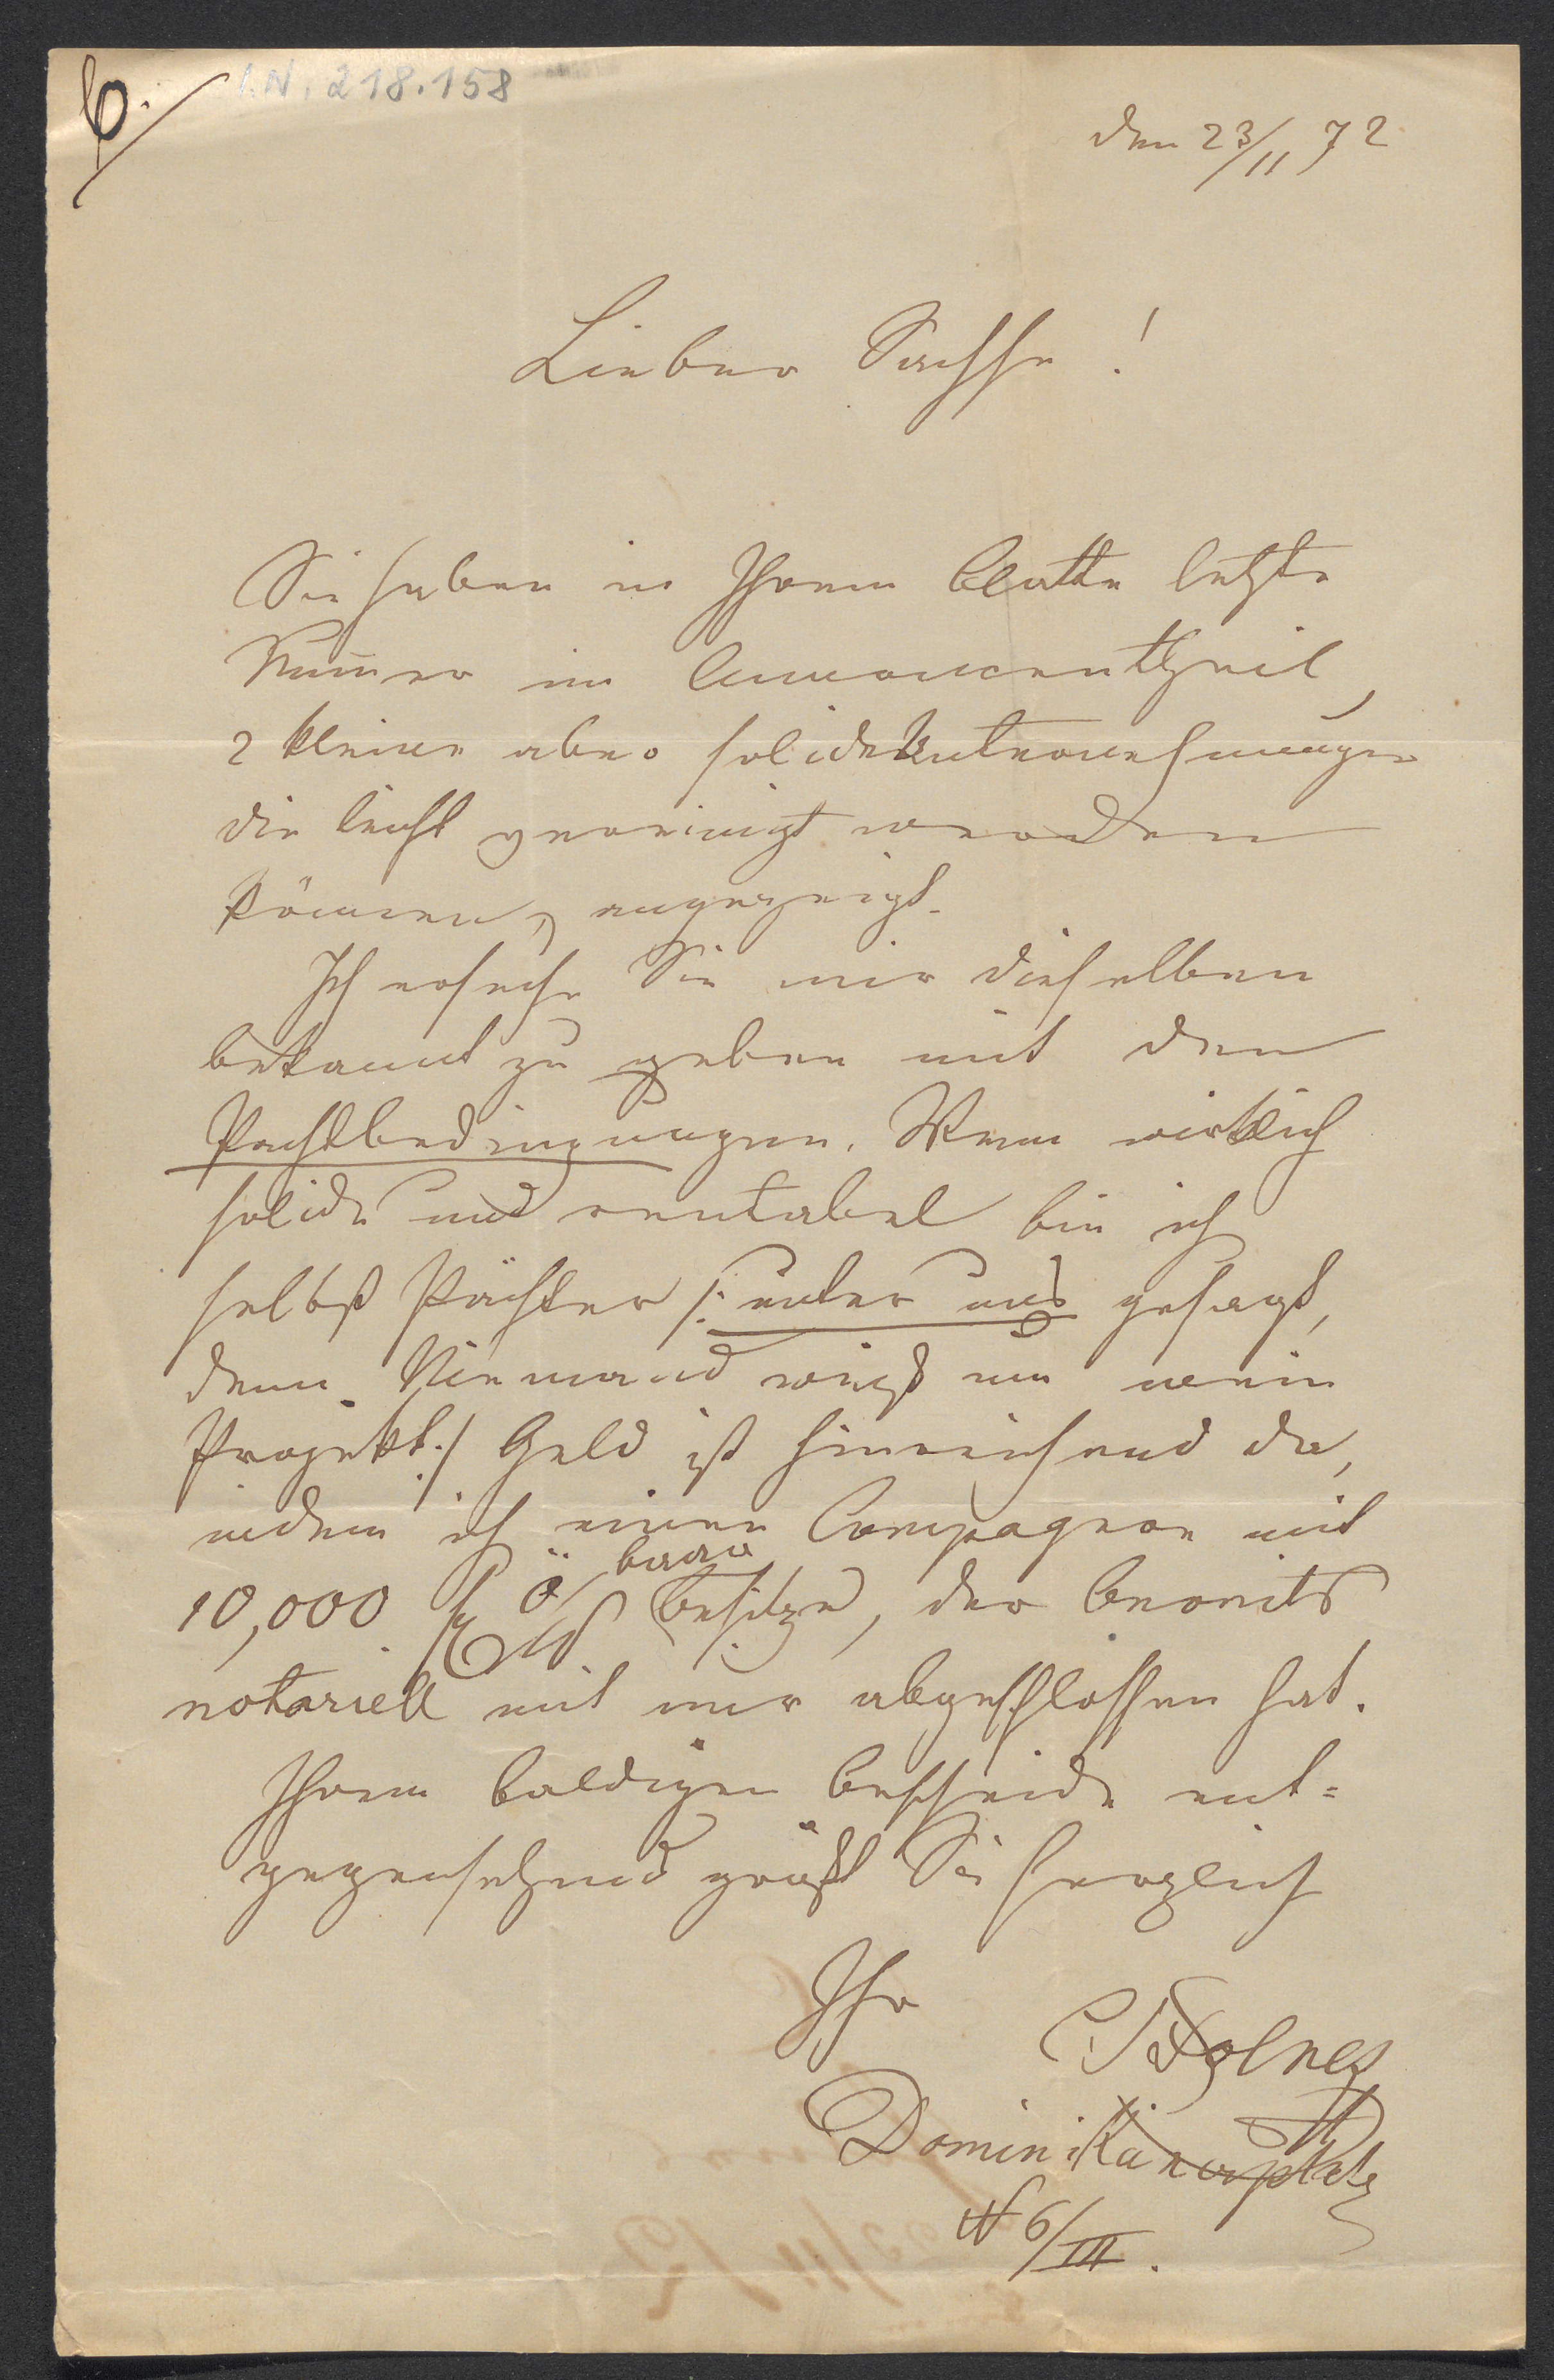 6.
I.N. 218.158
den 23/11 72
Lieber Sachse!
Sie haben in Ihrem Blatte letzte
Num̄er im Annoncentheil,
2 kleine aber solide Unternehmungen
die leicht gereinigt werden
können, angezeigt.
Ich ersuche Sie mir dieselben
bekannt zu geben mit den
Pachtbedingungen. Wenn wirklich
solide und rentabel bin ich
selbst Pächter /: unter uns gesagt,
denn Niemand weiß um mein
Projekt :/ Geld ist hinreichend da,
indem ich einen Compagnon mit
baar
10,000 fl öW besitze, der bereits
notariell mit mir abgeschlossen hat.
Ihrem baldigen Bescheide ent=
gegensehend grüßt Sie herzlich
Ihr
Dominikanerplatz
N 6/III.